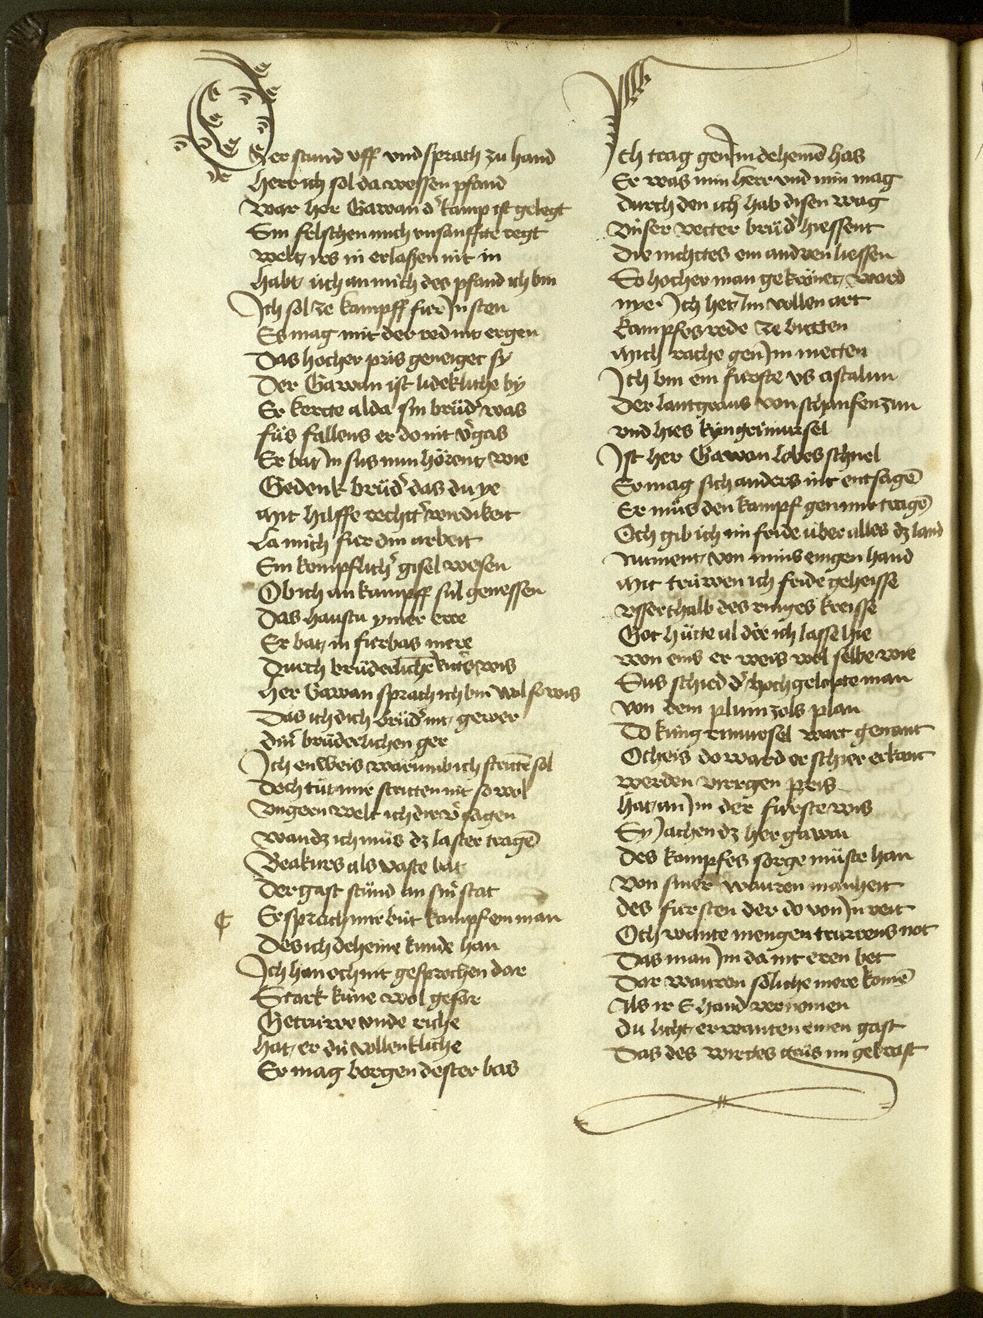 Der stund vff vnd sprach zu hand
Herr ich sol da wessen pfand
War her Gawan d' kamp ist gelegt
Sin felschen mich vnsanffte regt
Welt irs in erlaßen nit in
Habt üch an mich des pfand ich bin
Ich sol ze kampff fur In sten
Es mag mit der red nit ergen
Das hocher pris geneiget sy
Der Gawan ist lidekliche by
Er kerte alda sin brüd' was
füs fallens er do nit v'gas
Er bat In sus nun hörent wie
Gedenk brüd' das du ye
Mit hilffe recht' wirdikeit
La mich fur din arbeit
Ein kempflich' gisel wesen
Ob ich an kampff sül genessen
Das haustu ymer erre
Er bat in furbas mere
Durch brüderlichē ritt's pris
Her Gawan sprach ich bin wol so wis
Das ich dich brüd' nit gewer
Din' brüderlichen ger
Ich enweis warumb ich stritē sol
Doch tüt mir stritten nit so wol
Vngern welt ich dir v'sagen
Wan dz ich müs dz laster tragē
Beakurs als vaste bat
Der gast stünd an sin' stat
Er sprach mir büt kampf ein man
Des ich deheine kunde han
Ich han och nit gesprochen dar
Stark küne wol gefar
Getrüwe vnde riche
Hat er dü vollenkliche
Er mag borgen dester bas
Ich trag gen Im deheinē has
Er was min herr vnd min mag
Durch den ich hab disen wag
Vnser vetter brüd' hiessent
Die nichttes ein andren liessen
So hocher man gekrönet ward
nye Ich het Im vollen art
Kampfes rede ze bitten
Mich rache gen Im metten
Ich bin ein furste vs astalun
Der lantgraus von schanfenzun
Vnd hies kyngrimursel
Ist her Gawan lobes schnel
Er mag sich anders nit entsagē
Er müs den kampf gen mir tragē
Och gib ich im fride über alles dz land
Niment von mins eingen hand
Mit trüwen ich fride geheisse
Vsserthalb des ringes kreisse
Got hütte al d'er ich lasse hie
Won eins er weis wol selbe wie
Sus schied d' hochgelopte man
Von dem plimzols plan
Do king rimursel wart genant
Ocheis do ward er schier erkant
Werden virrgen pris
Hat an Im der furste wis
Sy Jachen dz her gawan
Des kampfes sorge müste han
Von siner wauren manheit
Des fursten der do von In reit
Och wante mengen trurrens not
Das man Im da nit eren bet
Dar wauren söliche mere komē
Als ir E hand vernomen
Du licht erwanten einen gast
Das des wirtes grüs im gebrast